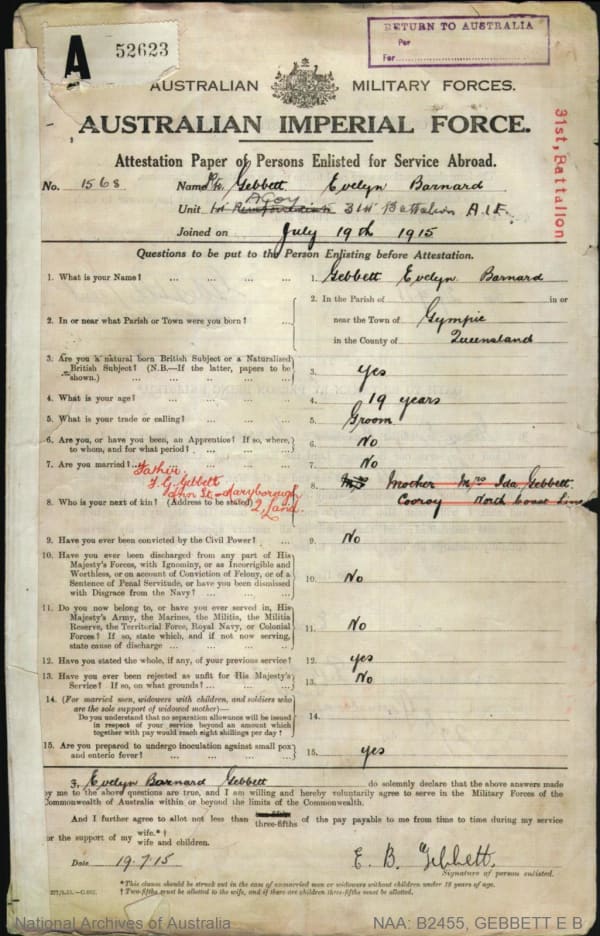 A 52623
RETURN TO AUSTRALIA
Per
For
AUSTRALIAN MILITARY FORCES.
AUSTRALIAN IMPERIAL FORCE.
31st, Battalion
Attestation Paper of Persons Enlisted for Service Abroad.
No. 1568 Name Pte Gebbett Evelyn Barnard
A Coy
Unit 31st Battalion A.I.F.
Joined on July 19th 1915
Questions to be put to the Person Enlisting before Attestation.
1. What is your Name? 1. Gebbett Evelyn Barnard
2. In or near what Parish or Town were you born? 2. In the Parish of in or
near the Town of Gympie
in the County of Queensland
3. Are you a natural born British Subject or a Naturalized
British Subject? (N.B.—If the latter, papers to be
shown.) 3. yes
4. What is your age? 4. 19 years
5. What is your trade or calling? 5. Groom
6. Are you, or have you been, an Apprentice? If so, where,
to whom, and for what period? 6. No
7. Are you married? 7. No
Father
F. G. Gebbett
John St. Maryborough
Q. Land
8. Who is your next of kin? (Address to be stated) 8. Mother Mrs Ida Gebbett
Cooroy North Coast Line
9. Have you ever been convicted by the Civil Power? 9. No
10. Have you ever been discharged from any part of His
Majesty's Forces, with Ignominy, or as Incorrigible and
Worthless, or on account of Conviction of Felony, or of a
Sentence of Penal Servitude, or have you been dismissed
with Disgrace from the Navy? 10. No
11. Do you now belong to, or have you ever served in, His
Majesty's Army, the Marines, the Militia, the Militia
Reserve, the Territorial Force, Royal Navy, or Colonial
Forces? If so, state which, and if not now serving,
state cause of discharge 11. No
12. Have you stated the whole, if any, of your previous service? 12. yes
13. Have you ever been rejected as unfit for His Majesty's
Service? If so, on what grounds? 13. No
14. (For married men, widowers with children, and soldiers who
are the sole support of widowed mother)—
Do you understand that no separation allowance will be issued
in respect of your service beyond an amount which
together with pay would reach eight shillings per day? 14.
15. Are you prepared to undergo inoculation against small pox
and enteric fever? 15. yes
I, Evelyn Barnard Gebbett do solemnly declare that the above answers made
by me to the above questions are true, and I am willing and hereby voluntarily agree to serve in the Military Forces of the
Commonwealth of Australia within or beyond the limits of the Commonwealth.
And I further agree to allot not less than three-fifths of the pay payable to me from time to time during my service
for the support of my wife.* †
wife and children.
Date 19.7.15 E. B. Gebbett.
Signature of person enlisted.
*This clause should be struck out in the case of unmarried men or widowers without children under 18 years of age.
† Two-fifths must be allotted to the wife, and if there are children three-fifths must be allotted.
National Archives of Australia NAA: B2455, GEBBETT E B